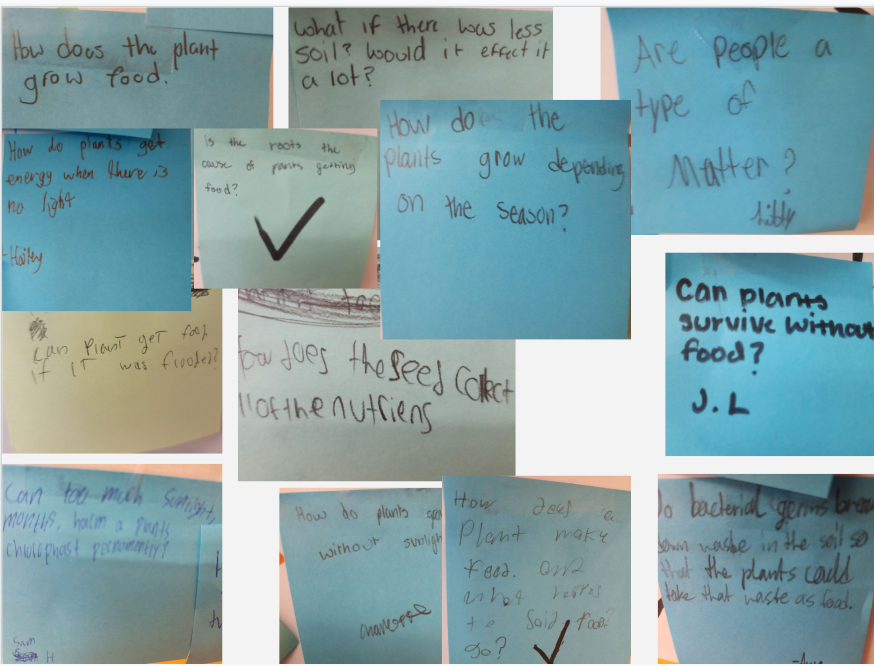 How does the plant
grow food.
what if there was less
soil? Would it effect it
a lot?
Are People a
type of
Matter?
How do plants get
energy when there is
no light
-Hailey
Is the roots the
cause of plants getting
food?
How do the
plants grow depending
on the season?
Can plants
survive without
food?
J.L
can Plant get food
if IT was flooded?
does the seed collect
of the nutriens
Can too much Sunlight,
months, harm a plants
chloroplast permanently?
Sam
H
How do plants
without sunligh
How does a
Plant make
food. and
what
to Said food
go?
bacterial germs
waste in the soil so
that the plants could
take that waste as food.